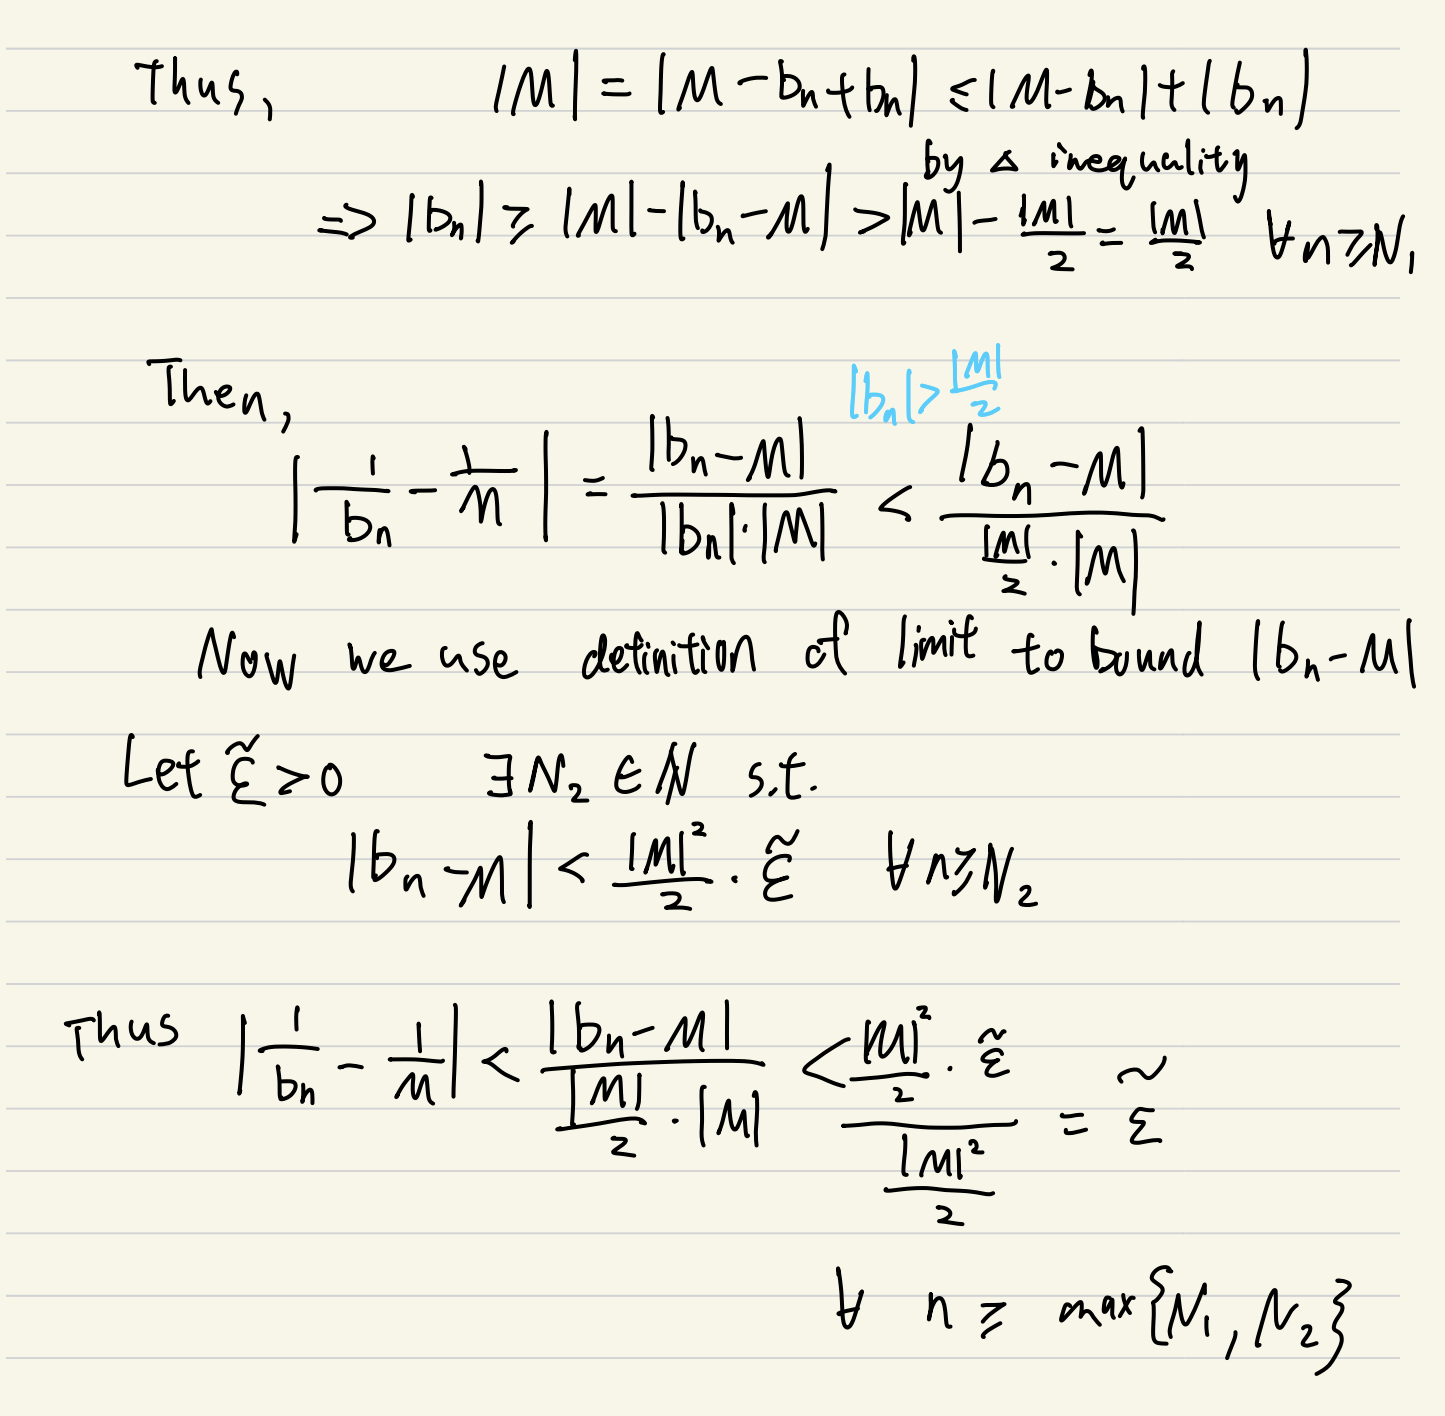 Thus, |M| = |M - bₙ + bₙ| ≤ |M - bₙ| + |bₙ|
by △ inequality
⇒ |bₙ| ≥ |M| - |bₙ - M| > |M| - |M|/2 = |M|/2 ∀ n ≥ N₁
Then,
|bₙ| > |M|/2
|1/bₙ - 1/M| = |bₙ - M| / (|bₙ|·|M|) < |bₙ - M| / (|M|/2 · |M|)
Now we use definition of limit to bound |bₙ - M|
Let ε̃ > 0 ∃ N₂ ∈ ℕ s.t.
|bₙ - M| < |M|²/2 · ε̃ ∀ n ≥ N₂
Thus |1/bₙ - 1/M| < |bₙ - M| / (|M|/2 · |M|) < (|M|²/2 · ε̃) / (|M|²/2) = ε̃
∀ n ≥ max{N₁, N₂}